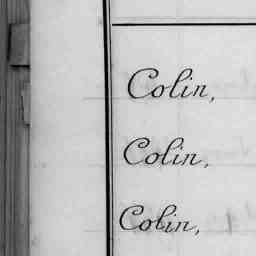 Colin,
Colin,
Colin,